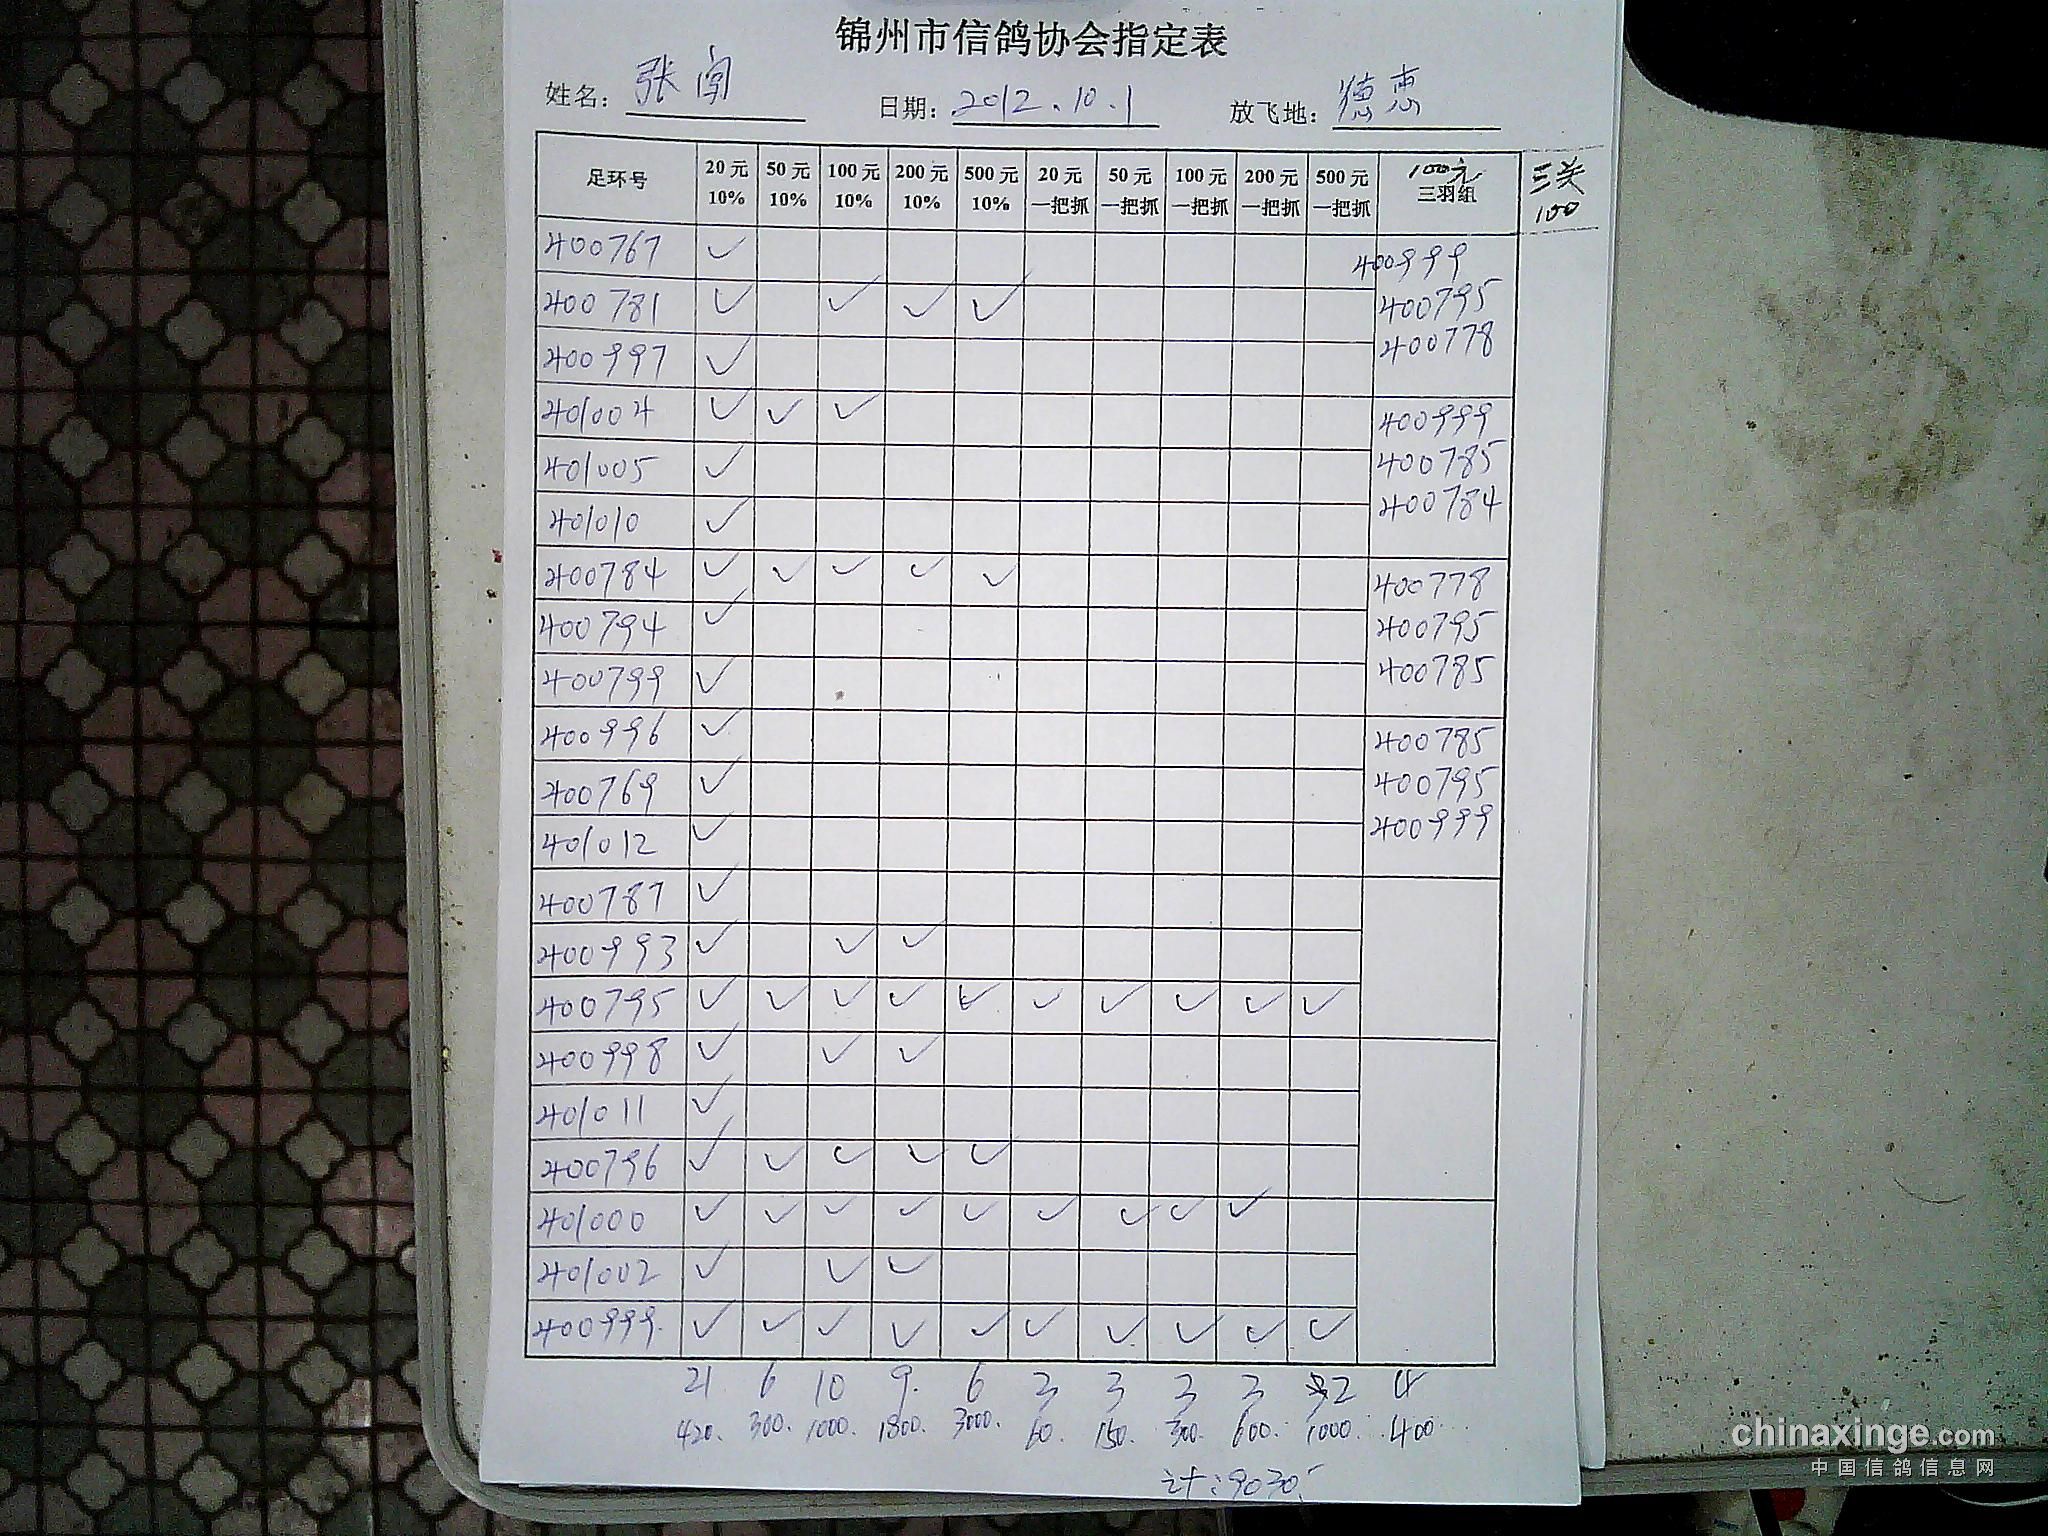 锦州市信鸽协会指定表
姓名： 张闯 日期： 2012.10.1 放飞地： 德惠
足环号 20元 10% 50元 10% 100元 10% 200元 10% 500元 10% 20元 一把抓 50元 一把抓 100元 一把抓 200元 一把抓 500元 一把抓 100元 三羽组 三关 100
400767 ✓ 400999
400781 ✓ ✓ ✓ ✓ 400795
400997 ✓ 400778
401004 ✓ ✓ ✓ 400999
401005 ✓ 400785
401010 ✓ 400784
400784 ✓ ✓ ✓ ✓ ✓ 400778
400794 ✓ 400795
400799 ✓ 400785
400996 ✓ 400785
400769 ✓ 400795
401012 ✓ 400999
400787 ✓
400993 ✓ ✓ ✓
400795 ✓ ✓ ✓ ✓ ✓ ✓ ✓ ✓ ✓ ✓
400998 ✓ ✓ ✓
401011 ✓
400796 ✓ ✓ ✓ ✓ ✓
401000 ✓ ✓ ✓ ✓ ✓ ✓ ✓ ✓ ✓
401002 ✓ ✓ ✓
400999. ✓ ✓ ✓ ✓ ✓ ✓ ✓ ✓ ✓ ✓
21 6 10 9. 6 3 3 3 3 2 4
420. 300. 1000. 1800. 3000. 60. 150. 300. 600. 1000. 400
计：9030
chinaxinge.com
中国信鸽信息网